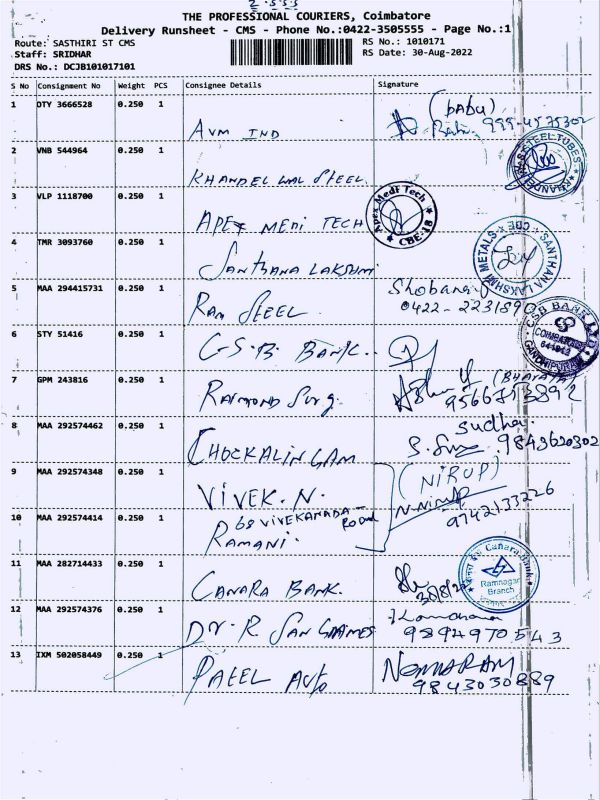 2.555
THE PROFESSIONAL COURIERS, Coimbatore
Delivery Runsheet - CMS - Phone No.:0422-3505555 - Page No.:1
Route: SASTHIRI ST CMS
RS No.: 1010171
Staff: SRIDHAR
RS Date: 30-Aug-2022
DRS No.: DCJB101017101
S No Consignment No Weight PCS Consignee Details Signature
1 OTY 3666528 0.250 1 AVM IND (BABU)
2 VNB 544964 0.250 1 KHANDELWAL STEEL STEEL TUBES
3 VLP 1118700 0.250 1 APEX MEDI TECH Apex Medi Tech CBE-18
4 TMR 3093760 0.250 1 SANTHANA LAKSHMI SANTHANA LAKSHMI METALS CBE
5 MAA 294415731 0.250 1 RAM STEEL Shobana
0422-2231890
6 STY 51416 0.250 1 C.S.B. BANK. CSB BANK LTD. COIMBATORE GANDHIPURAM
7 GPM 243816 0.250 1 RAIMOND Surg. (BHARATH)
8 MAA 292574462 0.250 1 CHOCKALINGAM Sudha.
9843620302
9 MAA 292574348 0.250 1 VIVEK. N. (NIRUP)
68 VIVEKANADA ROAD
9742133226
10 MAA 292574414 0.250 1 RAMANI.
11 MAA 282714433 0.250 1 CANARA BANK. 30/8/22 Canara Bank Ramnagar Branch
12 MAA 292574376 0.250 1 DR. R 9894970543
13 IXM 502058449 0.250 1 PATEL Auto NEMARAM
9843030889